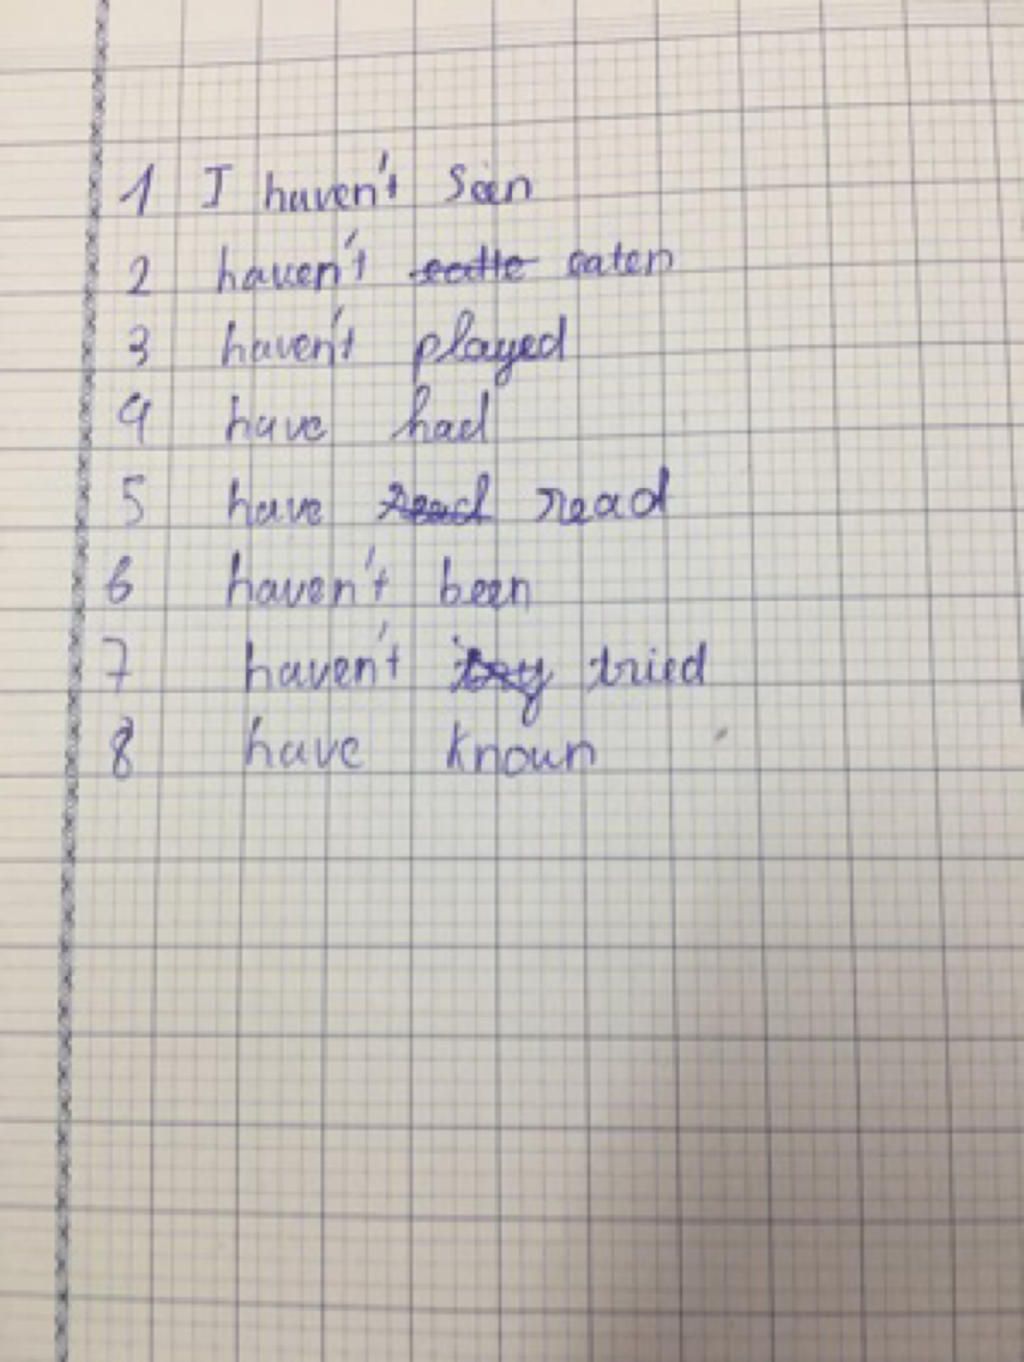 1 I haven't seen
2 haven't eaten
3 haven't played
4 have had
5 have read
6 haven't been
7 haven't tried
8 have known